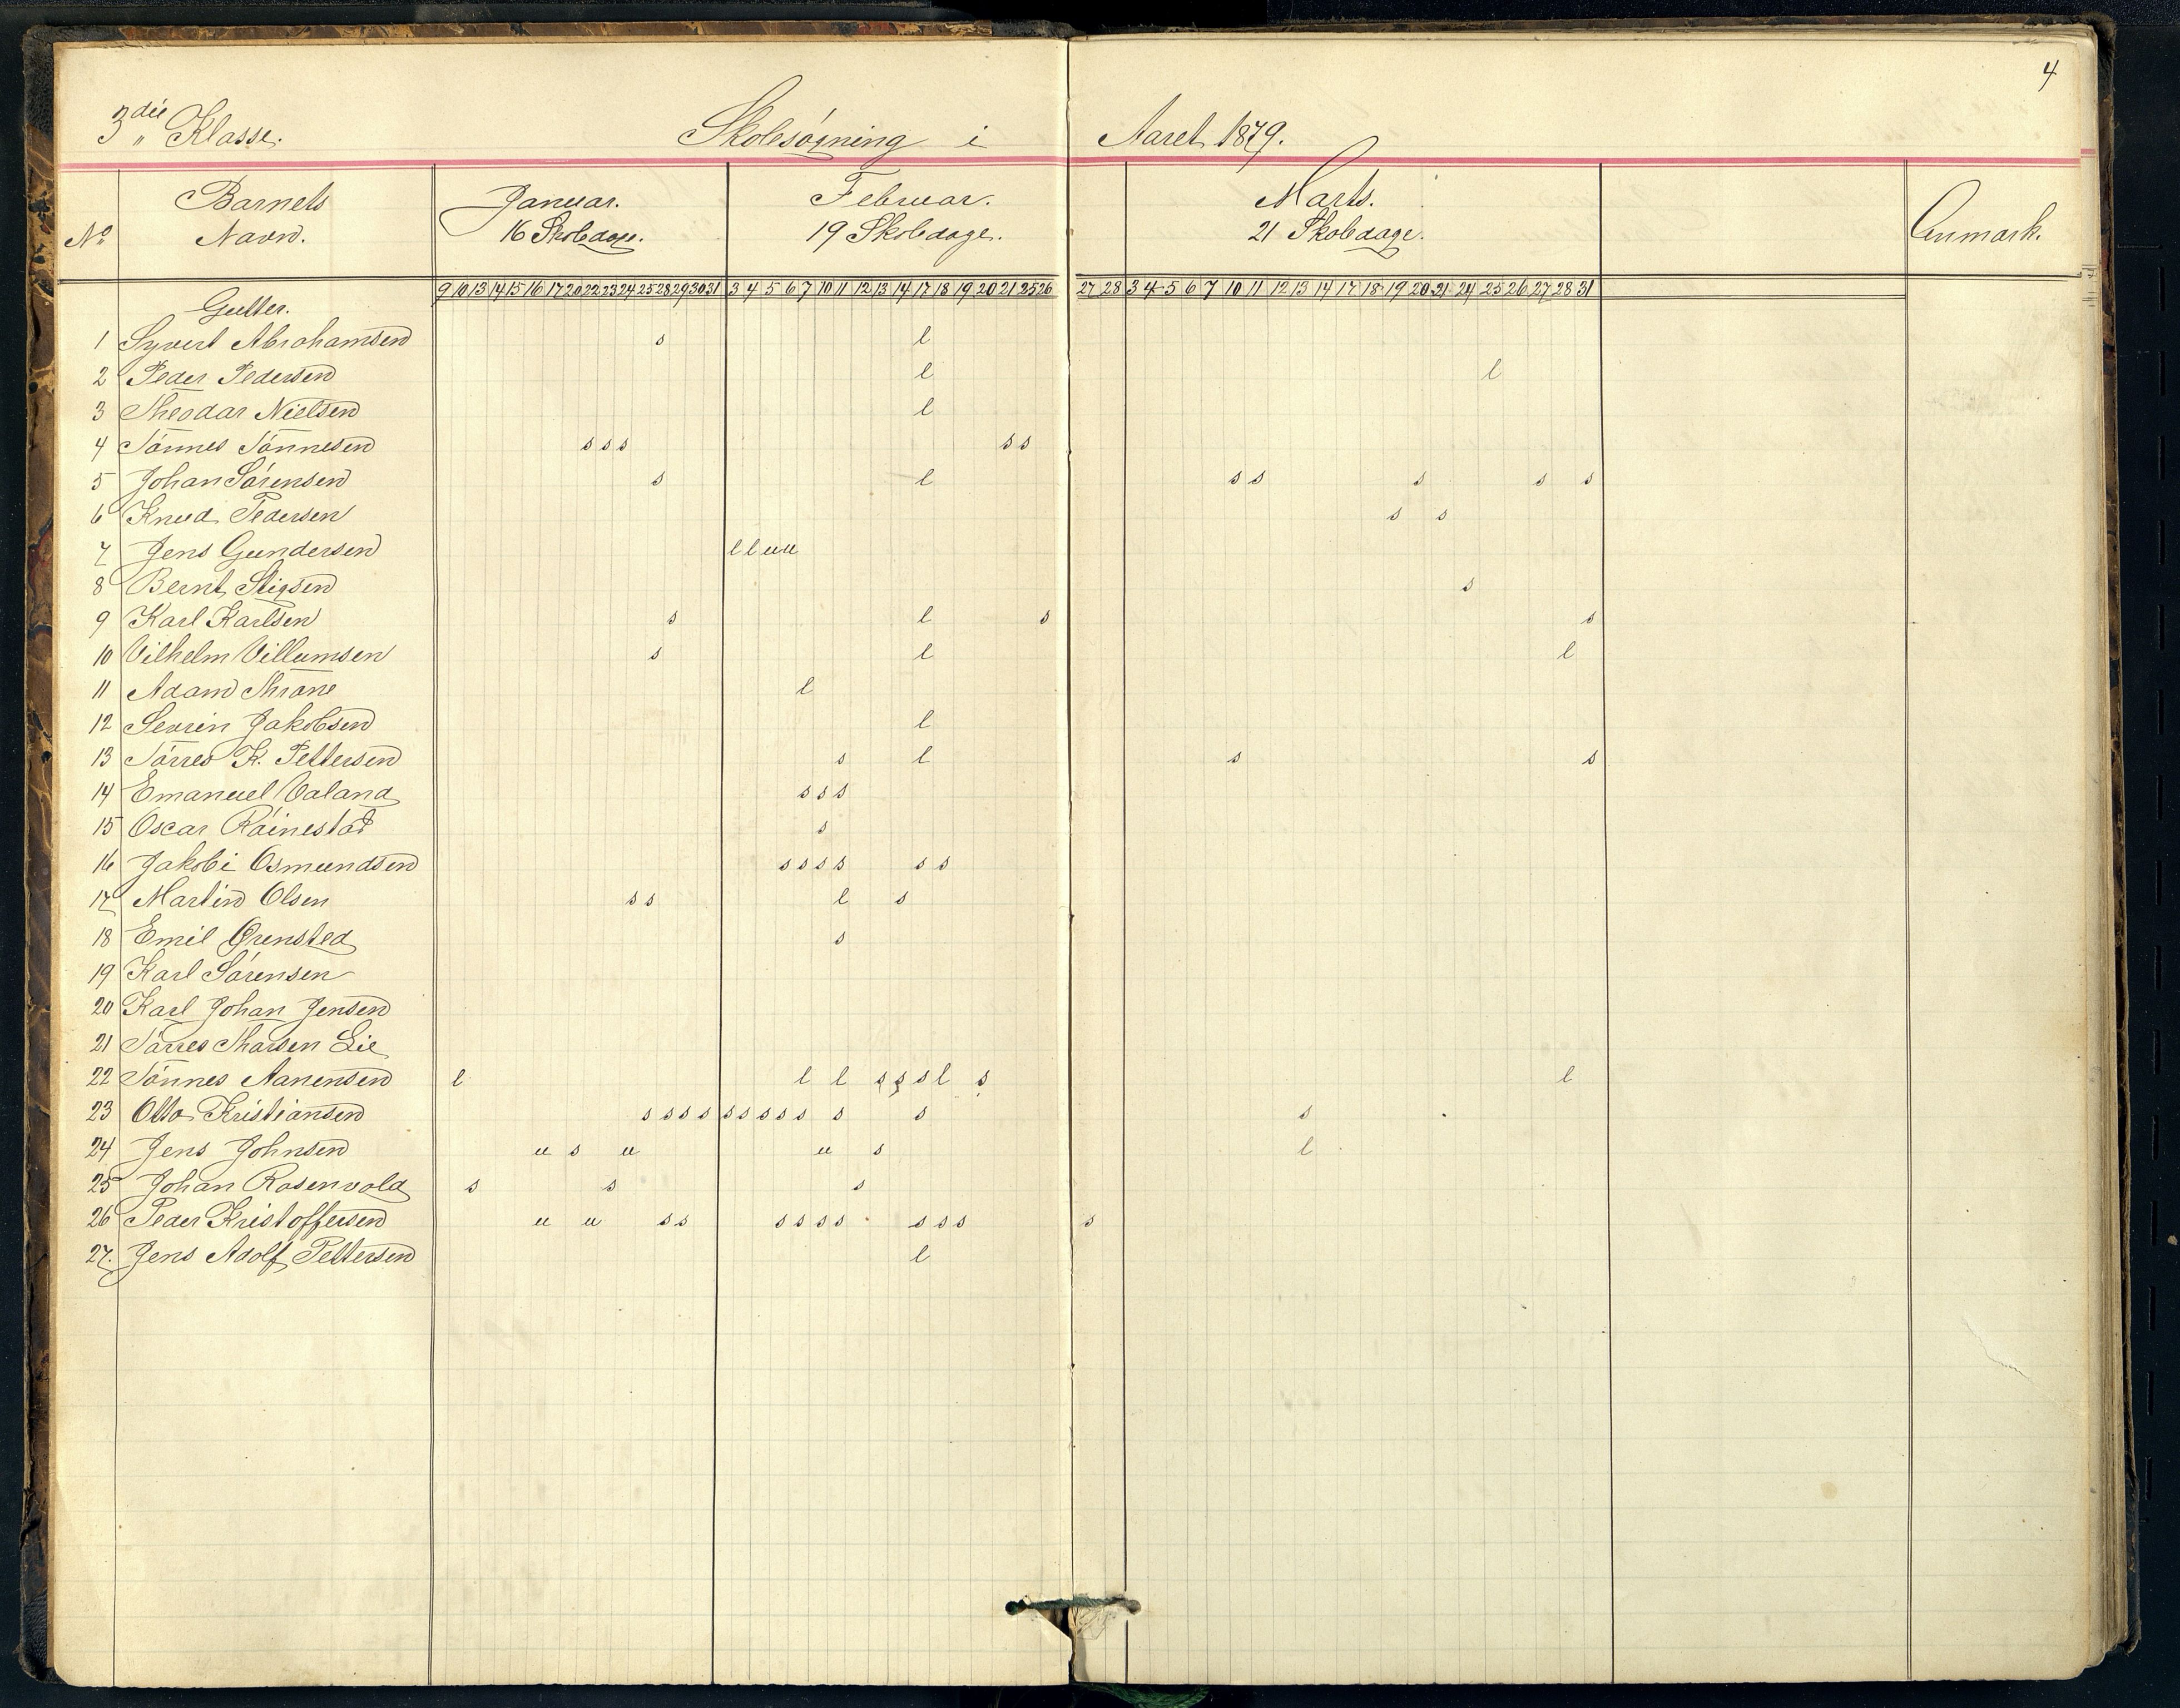 4
3die Klasse. Skolesögning i Aaret 1879.
No Barnets Navn. Januar. 16 Skoledage. Februar. 19 Skoledage. Marts. 21 Skoledage. Anmærk.
9 10 13 14 15 16 17 20 22 23 24 25 28 29 30 31 3 4 5 6 7 10 11 12 13 14 17 18 19 20 21 25 26 27 28 3 4 5 6 7 10 11 12 13 14 17 18 19 20 21 24 25 26 27 28 31
Gutter.
1 Syvert Abrahamsen s l
2 Peder Pedersen l l
3 Theodor Nielsen l
4 Tönnes Tönnesen s s s s s
5 Johan Sörensen s l s s s s s
6 Knud Pedersen s s
7 Jens Gundersen l l u u
8 Bernt Stigsen s
9 Karl Karlsen s l s s
10 Vilhelm Villumsen s l l
11 Adam Thrane l
12 Sevrin Jakobsen l
13 Törres K. Pettersen s l s s
14 Emanuel Valand s s s
15 Oscar Röinestad s
16 Jakobi Osmundsen s s s s s s
17 Martin Olsen s s l s
18 Emil Ørensted s
19 Karl Sörensen
20 Karl Johan Jensen
21 Törres Thorsen Lie
22 Tönnes Aanensen l l l s s s l s l
23 Otto Kristiansen s s s s s s s s s s s s
24 Jens Johnsen u s u u s l
25 Johan Rosenvold s s s
26 Peder Kristoffersen u u s s s s s s s s s s
27. Jens Adolf Pettersen l